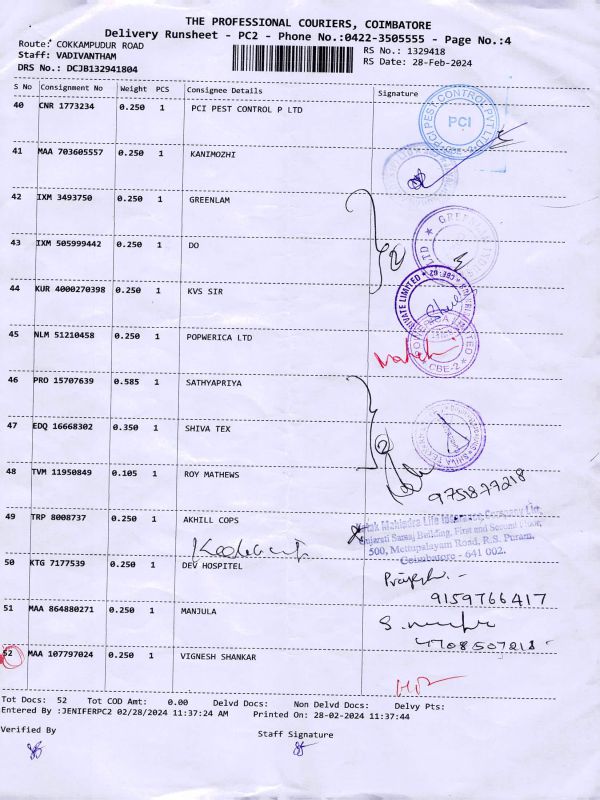 THE PROFESSIONAL COURIERS, COIMBATORE
Delivery Runsheet - PC2 - Phone No.:0422-3505555 - Page No.:4
Route: COKKAMPUDUR ROAD RS No.: 1329418
Staff: VADIVANTHAM RS Date: 28-Feb-2024
DRS No.: DCJB132941804
S No Consignment No Weight PCS Consignee Details Signature
40 CNR 1773234 0.250 1 PCI PEST CONTROL P LTD
PCI PEST CONTROL PVT LTD
PCI
41 MAA 703605557 0.250 1 KANIMOZHI
42 IXM 3493750 0.250 1 GREENLAM
43 IXM 505999442 0.250 1 DO
44 KUR 4000270398 0.250 1 KVS SIR
PRIVATE LIMITED
45 NLM 51210458 0.250 1 POPWERICA LTD
CBE-2
46 PRO 15707639 0.585 1 SATHYAPRIYA
47 EDQ 16668302 0.350 1 SHIVA TEX
48 TVM 11950849 0.105 1 ROY MATHEWS
9751877218
49 TRP 8008737 0.250 1 AKHILL COPS
Kotak Mahindra Life Insurance Company Ltd.
Gujarati Samaj Building, First and Second Floor,
500, Mettupalayam Road, R.S. Puram,
Coimbatore - 641 002.
50 KTG 7177539 0.250 1 DEV HOSPITEL
9159766417
51 MAA 864880271 0.250 1 MANJULA
52 MAA 107797024 0.250 1 VIGNESH SHANKAR
Tot Docs: 52 Tot COD Amt: 0.00 Delvd Docs: Non Delvd Docs: Delvy Pts:
Entered By :JENIFERPC2 02/28/2024 11:37:24 AM Printed On: 28-02-2024 11:37:44
Verified By Staff Signature